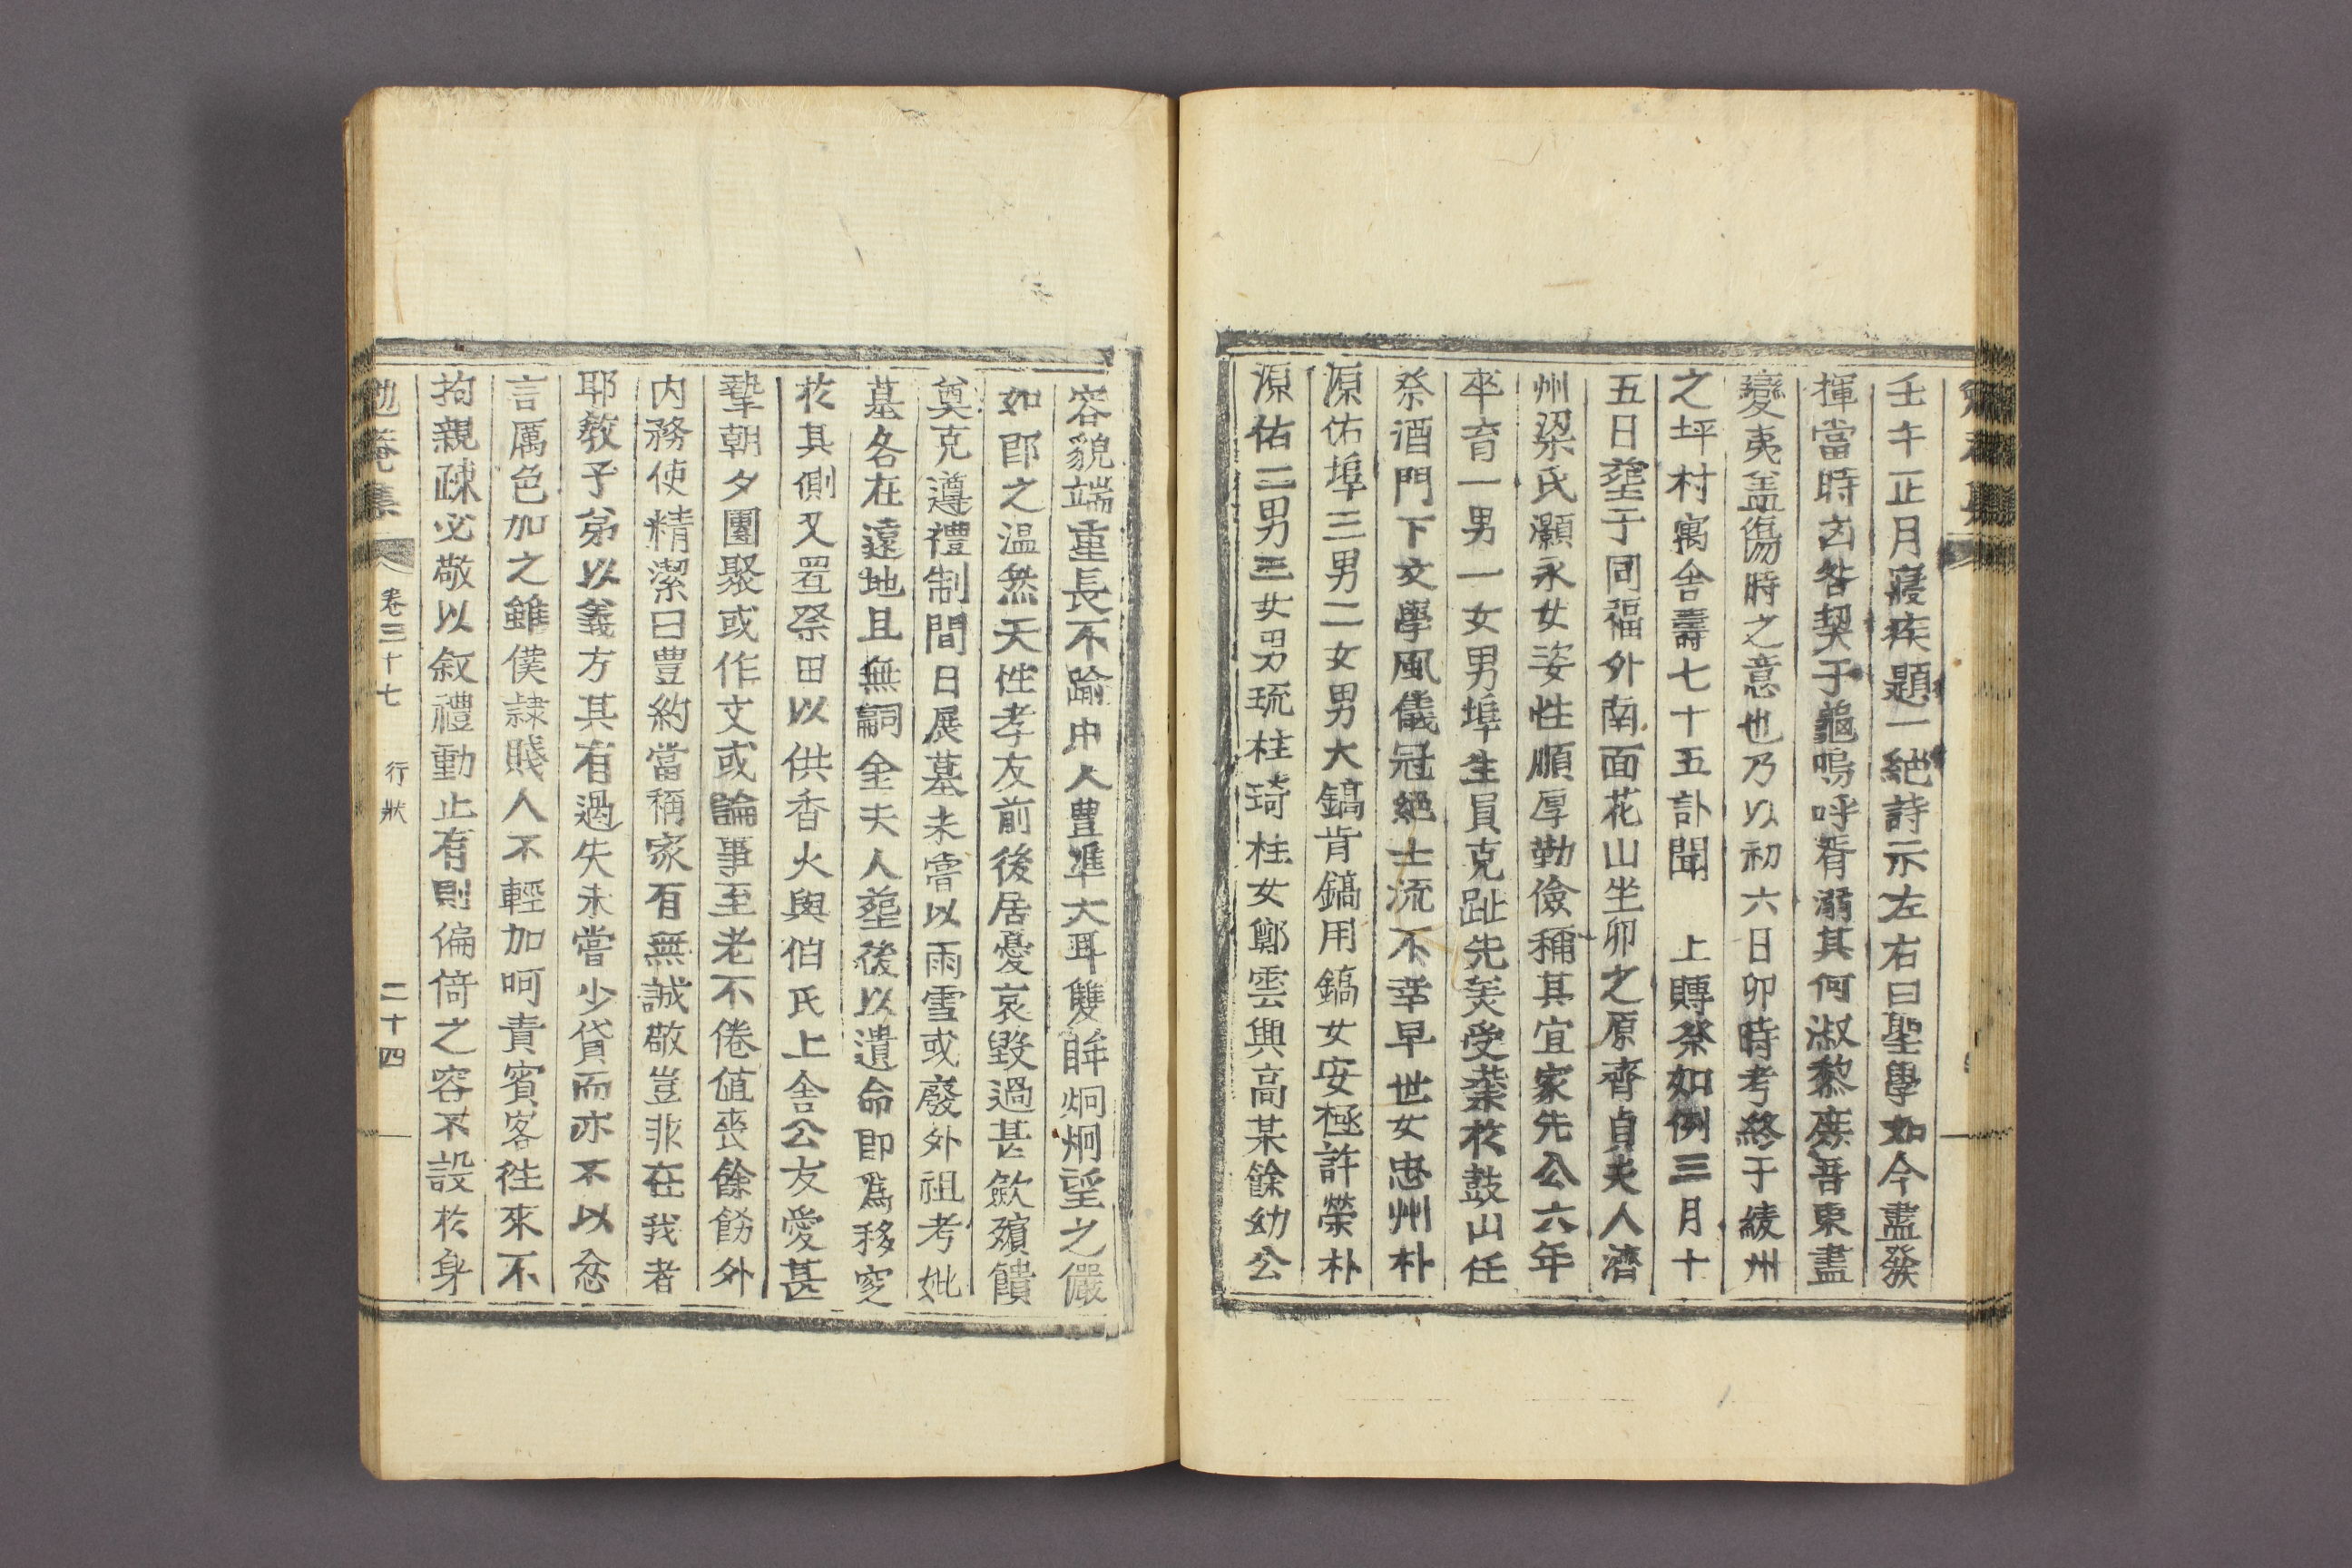 壬午正月寢疾題一絕詩示左右曰聖學如今盡發
揮當時玄咎契于龜嗚呼胥溺其何淑黎庶吾東盡
變夷盖傷時之意也乃以初六日卯時考終于綾州
之坪村寓舍壽七十五訃聞　上賻祭如例三月十
五日葬于同福外南面花山坐卯之原齊貞夫人濟
州梁氏灝永女姿性順厚勤儉稱其宜家先公六年
卒育一男一女男埠生員克趾先羙受業於鼓山任
祭酒門下文學風儀冠絕士流不幸早世女忠州朴
源佑埠三男二女男大鎬肯鎬用鎬女安極許榮朴
源佑二男三女男琉柱琦柱女鄭雲興高某餘幼公
容貌端重長不踰中人豊準大耳雙眸炯炯望之儼
如卽之温然天性孝友前後居憂哀毀過甚歛殯饋
奠克遵禮制間日展墓未嘗以雨雪或廢外祖考妣
墓各在遠地且無嗣金夫人葬後以遺命即爲移窆
於其側又置祭田以供香火與伯氏上舍公友愛甚
摯朝夕團聚或作文或論事至老不倦値喪餘飭外
内務使精潔曰豊約當稱家有無誠敬豈非在我者
耶敎子弟以義方其有過失未嘗少貸而亦不以忿
言厲色加之雖僕隷賤人不輕加呵責賓客往來不
拘親疎必敬以叙禮動止有則偏倚之容不設於身
勉菴集　卷三十七　行狀　二十四